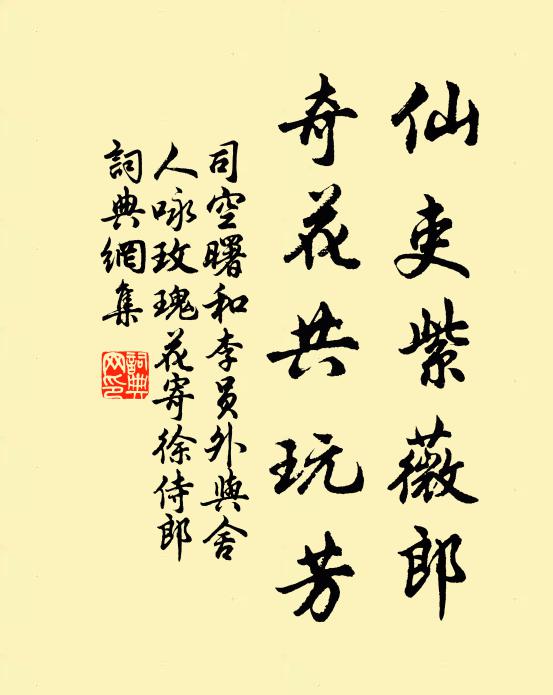 仙吏紫薇郎
奇花共玩芳
司空曙和李員外與舍
人咏玫瑰花寄徐侍郎
詞典網集
詞典網印